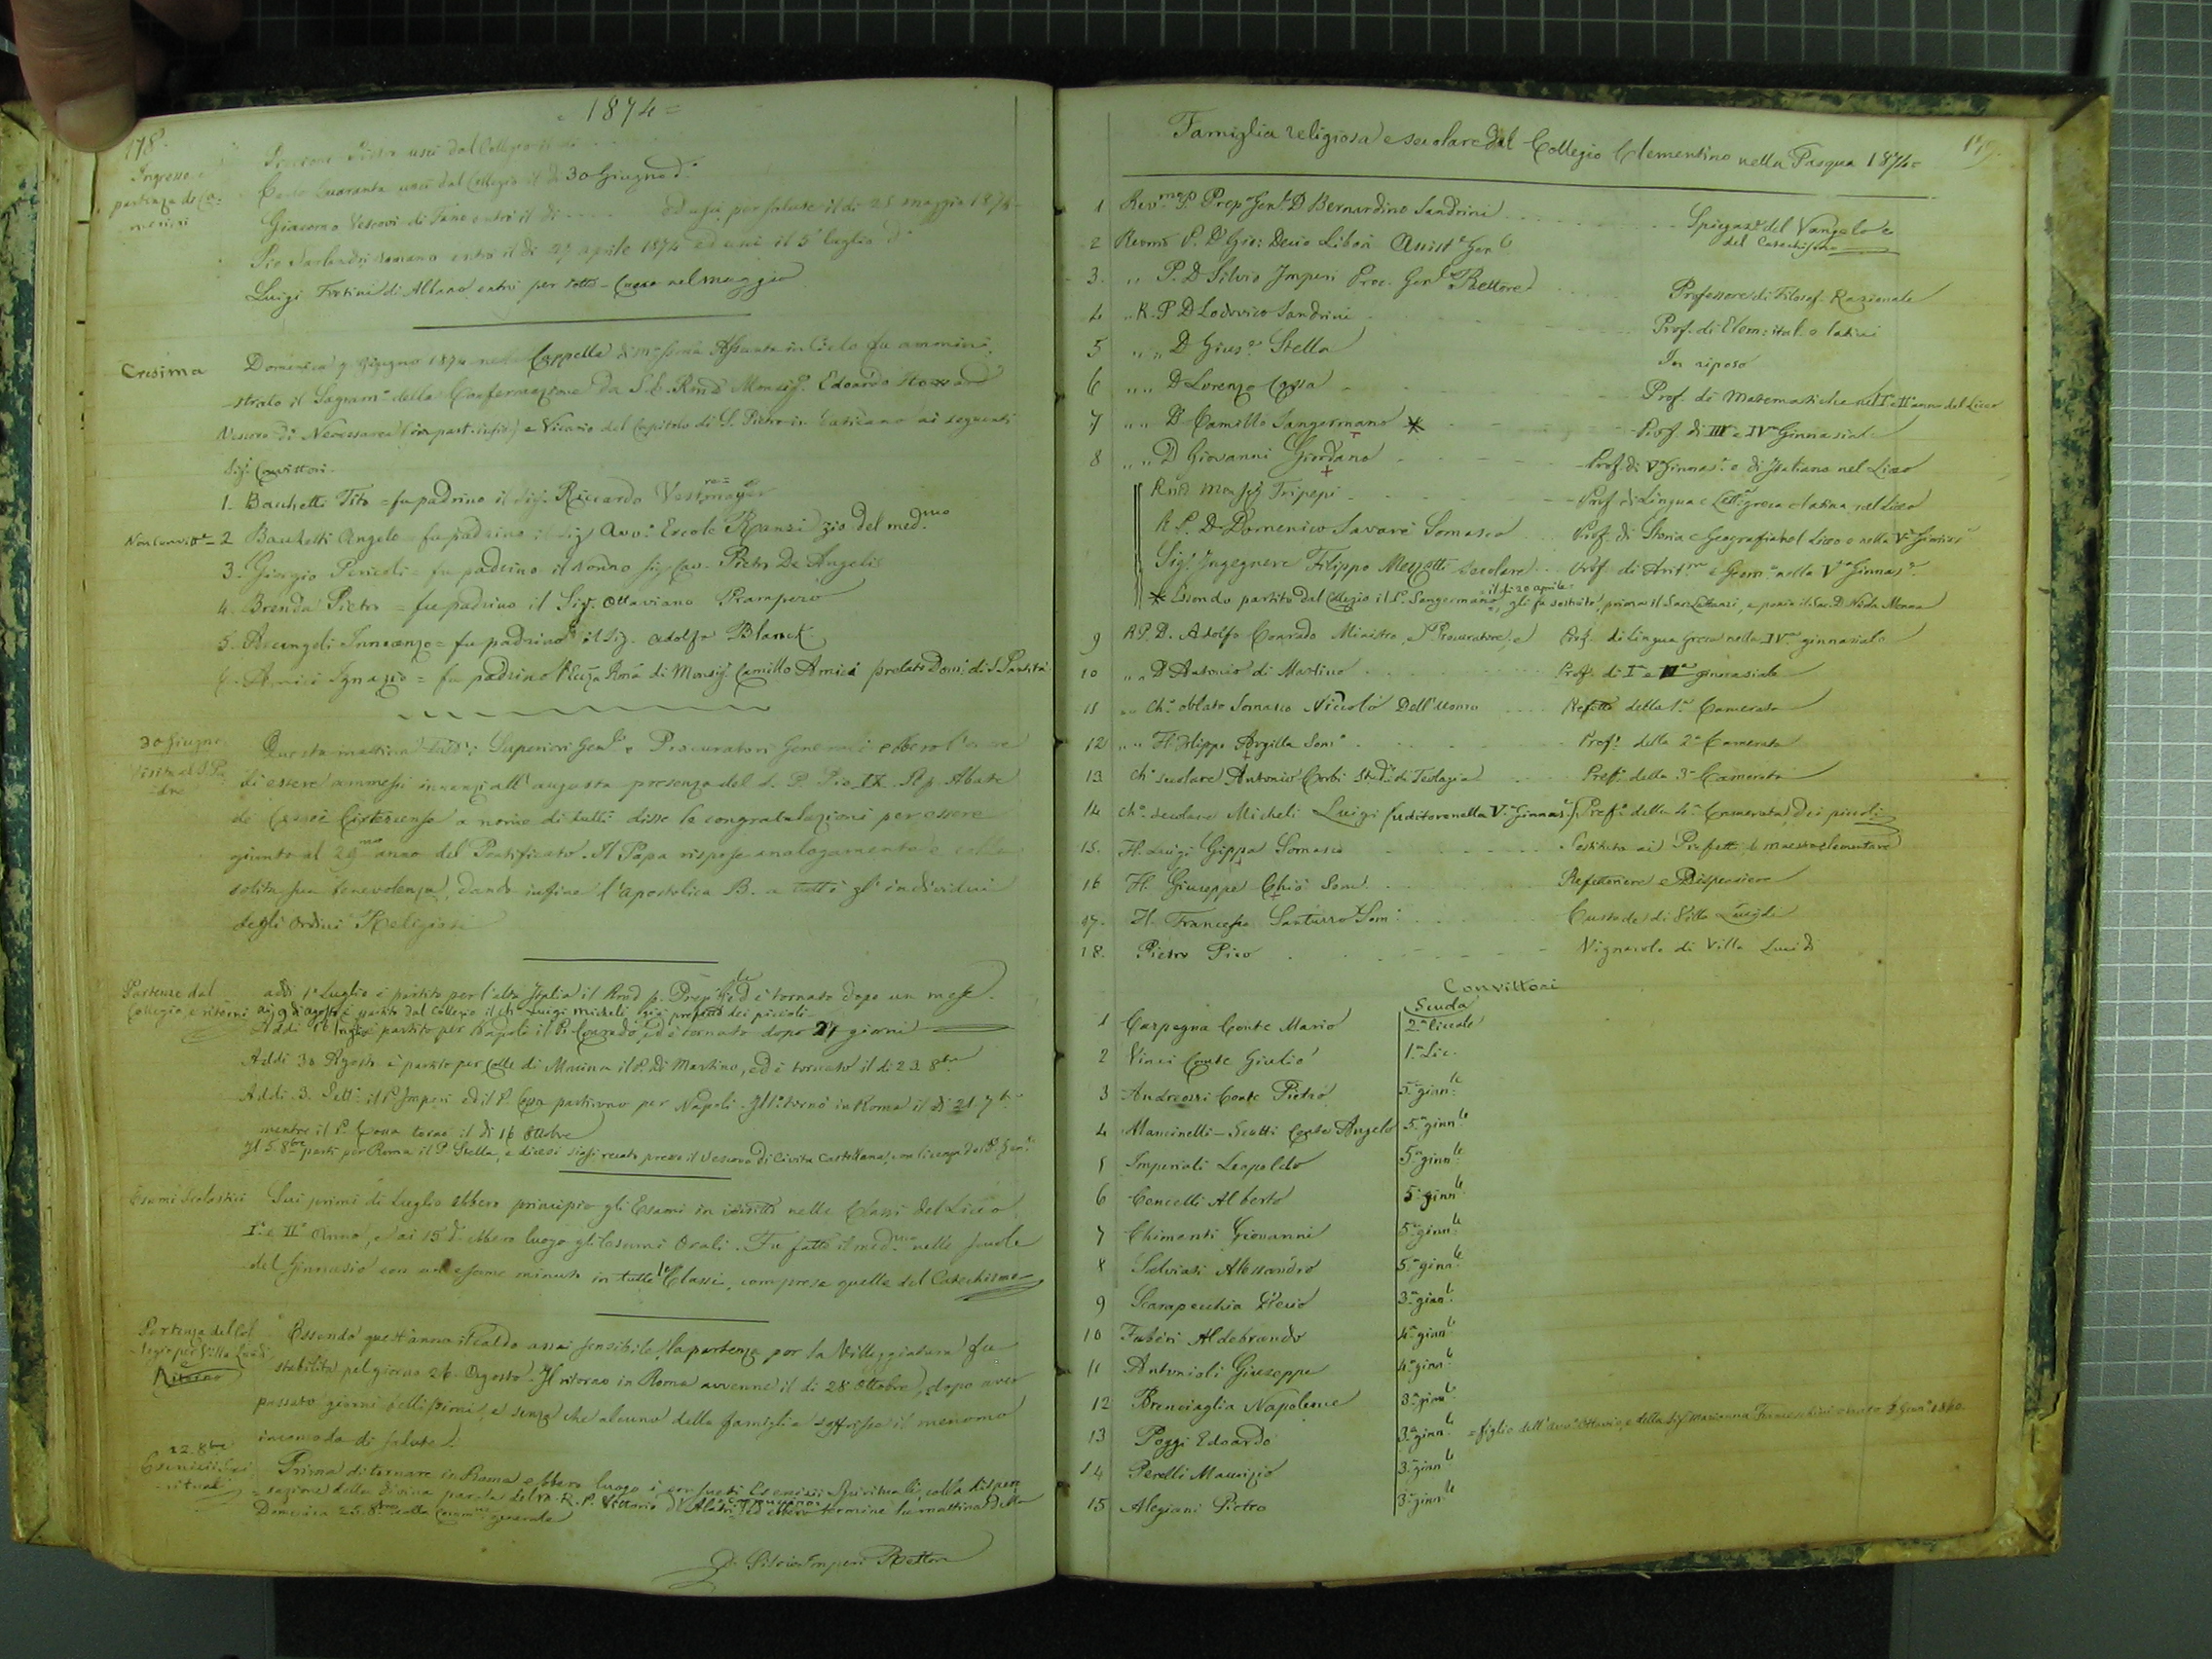 1874=
178
Ingresso e
partenza de' Co=
Pietro uscì dal Collegio il dì
Carlo Quaranta uscì dal Collegio il dì 30 Giugno d.°
Giacomo Vescovi di Fano entrò il dì ..... ed uscì per salute il dì 25 maggio 1874
Pio Romano entrò il dì 27 aprile 1874 ed uscì il 5 luglio d.°
Luigi Fortini di Albano entrò per sotto-Cuoco nel maggio
Cresima
Domenica 7 giugno 1874 nella Cappella di Assunta in Cielo fu ammini
strato il Sagram.° della Confermazione da S. E. Rmã Monsig.r Edoardo Howard
Vescovo di Neocesarea (in part. infid.) e Vicario del Capitolo di S. Pietro in Vaticano ai seguenti
Sig.i Convittori.
1. Bacchetti Tito = fu padrino il Sig. Riccardo
Non convitt.e – 2 Bacchetti Angelo fu padrino il Sig. Avv. Ercole Ranzi zio del med.mo
3. Giorgio Pericoli = fu padrino il nonno Sig. Cav. Pietro De Angelis
4. Brenda Pietro = fu padrino il Sig. Ottaviano Prampero
5. Arcangeli Innocenzo = fu padrino il Sig. Adolfo Blanck
6. Amici Ignazio = fu padrino Monsig. Camillo Amici prelato Dom. di S. Santità
30 Giugno
Visita al S. Pa
dre
Questa mattina tutti i Superiori Gen.li e Procuratori Generali ebbero l'onore
di essere ammessi innanzi all'augusta presenza del S. P. Pio IX. Il p. Abate
de' Cisterciense a nome di tutti disse le congratulazioni per essere
giunto al 29mo anno del Pontificato. Il Papa rispose analogamente e colla
solita sua benevolenza, dando infine l'apostolica B. a tutti gl'individui
degli Ordini Religiosi
Partenze dal
Collegio, e ritorni
addì 1° Luglio è partito per l'alta Italia il Rmõ p. Prep.to Gen.le ed è tornato dopo un mese.
ai 9 d'agosto è partito dal Collegio il Ch.° Luigi Micheli già prefetto dei piccoli
Addì 16 è partito per Napoli il P. Conrado, ed è tornato dopo 27 giorni
Addì 30 Agosto è partito per Colle di Macina il P. di Martino, ed è tornato il dì 23 8bre
Addì 3. Sett.e il P. Imperi ed il P. Cossa partirono per Napoli. Il 1° tornò in Roma il dì 21 7bre
mentre il P. Cossa tornò il dì 16 Ottobre
Il 5. 8bre partì per Roma il P. Stella, e dicesi siasi recato presso il Vescovo di Civita Castellana, con licenza del P. Gen.le
Esami Scolastici
Sui primi di Luglio ebbero principio gli Esami in iscritto nelle Classi del Liceo
I° e II° Anno, e ai 15 d.° ebbero luogo gli esami Orali. Fu fatto il med.mo nelle scuole
del Ginnasio con un esame minuto in tutte le Classi, comprese quelle del Catechismo
Partenza del Col
legio per Villa Lucidi
e
Ritorno
Essendo quest'anno il caldo assai sensibile, la partenza per la Villeggiatura fu
stabilita pel giorno 26 Agosto. Il ritorno in Roma avvenne il dì 28 Ottobre, dopo aver
passato giorni bellissimi, e senza che alcuno della famiglia soffrisse il menomo
incomodo di salute.
22. 8bre
Esercizii Spi
rituali
Prima di tornare in Roma ebbero luogo i consueti Esercizii Spirituali, colla dispen
sazione della Divina parola del M. R. P. Vittorio ed ebbero termine la mattina della
Domenica 25. 8bre colla Comm.ne generale
D. Silvio Imperi Rettore
179
Famiglia religiosa e secolare del Collegio Clementino nella Pasqua 1874=
1 Rev.mo P. Prep. Gen.l D Bernardino Sandrini
2 Revmõ P. D. Gio: Decio Libois Assist.e Gen.le Spiegaz.e del Vangelo e del Catechismo
3. " P. D Silvio Imperi Proc. Gen.l Rettore
4 " R. P D Lodovico Sandrini Professore di Filosof. Razionale
5 " " D Gius.e Stella Prof. di Elem: ital. e latini
6 " " D Lorenzo Cossa In riposo
7 " " D Camillo Sangermano * Prof. di Matematiche nel I° e II° anno del Liceo
8 " " D Giovanni Giordano Prof. di III e IVa Ginnasiale
Rmõ Monsig Tripepi Prof. di V Ginnas.e e di Italiano nel Liceo
R P. D. Domenico Savarè Somasco Prof. di Lingua e Lett.a greca e latina nel Liceo
Sig. Ingegnere Filippo Mezzetti secolare Prof. di Storia e Geografia nel Liceo e nella Va Ginnas.e
Prof. di Arit.ca e Geom.a nella Va Ginnas.e
* Essendo partito dal Collegio il P. Sangermano il dì 20 aprile, gli fu sostituito, prima il Sac. Lotanzi, e poscia il Sac. D. Nicola Monaco
9 R P. D. Adolfo Conrado Ministro, e Procuratore, e Prof. di lingua greca nella IVa ginnasiale
10 " " D Antonio di Martino Prof. di Ia e IIa ginnasiale
11 " Ch.° oblato Somasco Niccolò Dell'Uomo Prefetto della 1a Camerata
12 " " Fr. Filippo Argilla Som.° Pref.° della 2a Camerata
13 Ch.° secolare Antonio Corbi Stud.te di Teologia Pref. della 3a Camerata
14 Ch.° secolare Micheli Luigi (uditore nella Va Ginnas.e) Pref.° della 4a Camerata dei piccoli
15. Fr. Luigi Gippa Somasco Sostituto ai Prefetti e maestro elementare
16 Fr. Giuseppe Chiò Som. Refettoriere e Dispensiere
17. Fr. Francesco Santurro Som: Custode di Villa Lucidi
18. Pietro Pico Vignarolo di Villa Lucidi
Convittori
Scuola
1 Carpegna Conte Mario 2a liceale
2 Vinci Conte Giulio 1a Lic.
3 Andreozzi Conte Pietro 5a ginn.le
4 Mancinelli-Scotti Conte Angelo 5a ginn.le
5 Imperiali Leopoldo 5a ginn.le
6 Cencelli Alberto 5a ginn.le
7 Chimenti Giovanni 5a ginn.le
8 Salviati Alessandro 5a ginn.le
9 Scarapecchia 3a ginn.le
10 Fabèri Aldebrando 4a ginn.le
11 Antonioli Giuseppe 4a ginn.le
12 Brenciaglia Napoleone 3a ginn.le
13 Poggi Edoardo 3a ginn.le = figlio dell'avv.° Ottavio, e della Sig. Marianna Franceschini nato Genn.° 1860.
14 Perelli Maurizio 3a ginn.le
15 Alegiani Pietro 3a ginn.le